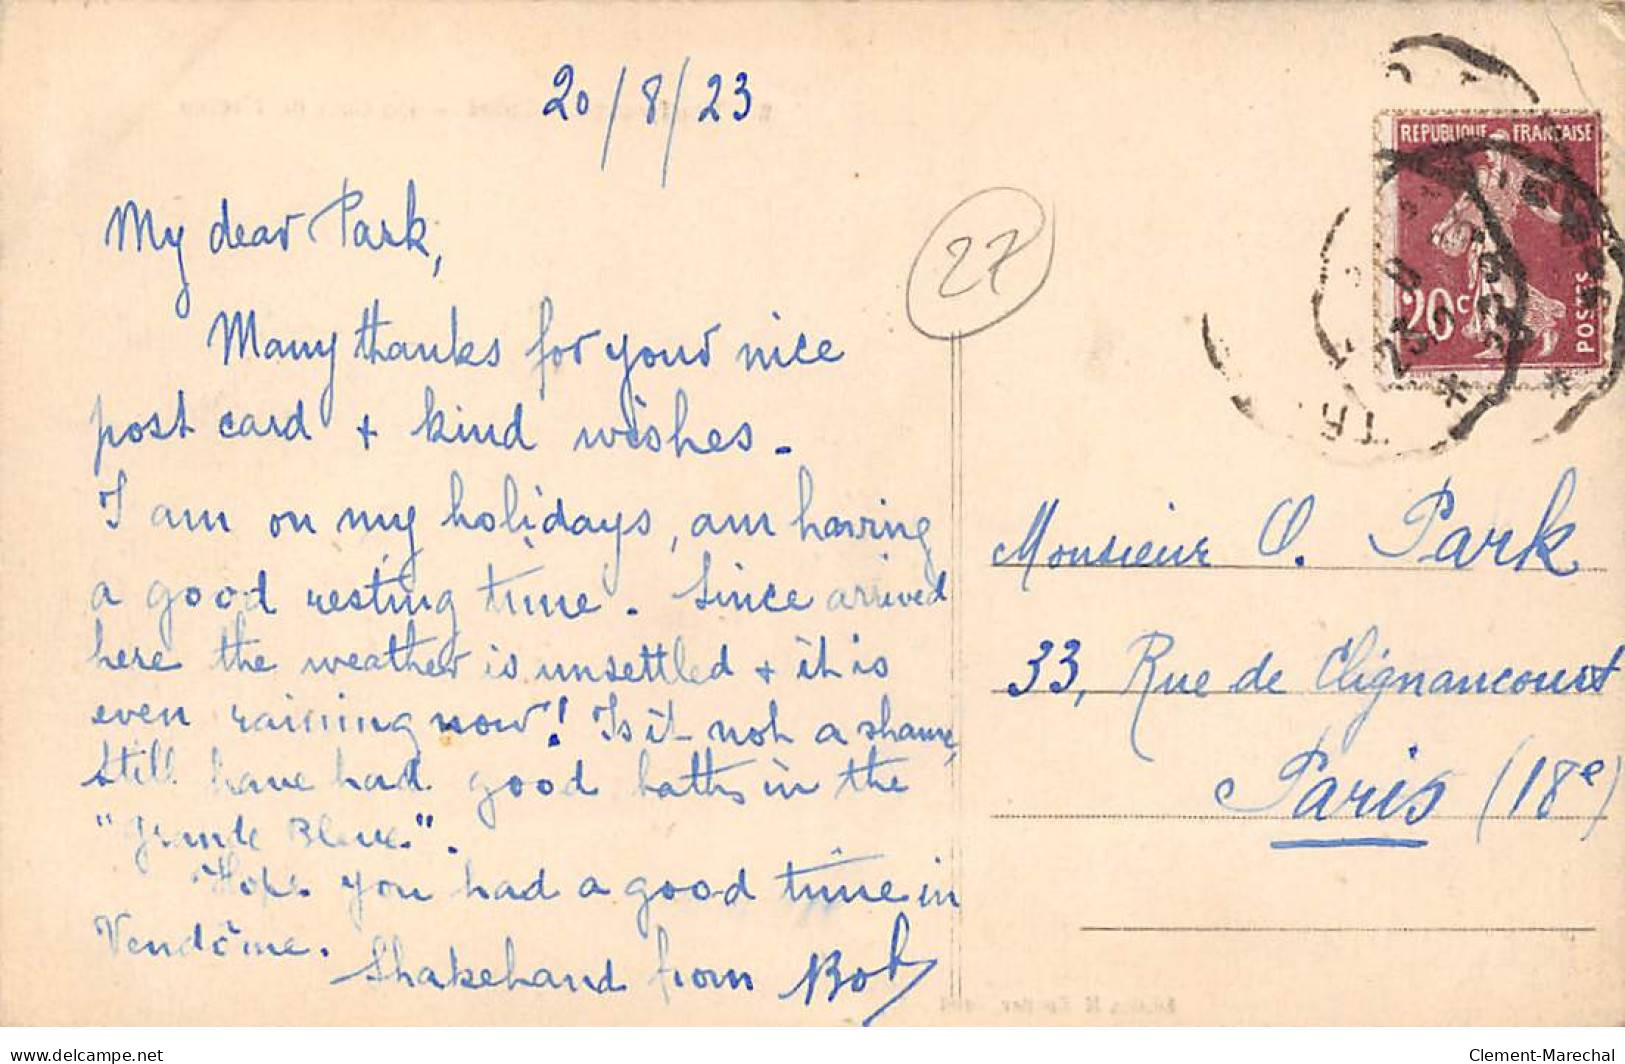 20/8/23
My dear Park,
Many thanks for your nice
post card + kind wishes -
I am on my holidays, am having
a good resting time. Since arrived
here the weather is unsettled + it is
even raining now! Is it not a shame,
still have had good baths in the
"Grande Bleue".
Hope you had a good time in
Vendôme.
Shakehand from Bob
27
REPUBLIQUE FRANÇAISE
20c
POSTES
Monsieur O. Park
33, Rue de Clignancourt
Paris (18e)
delcampe.net
Clement-Marechal